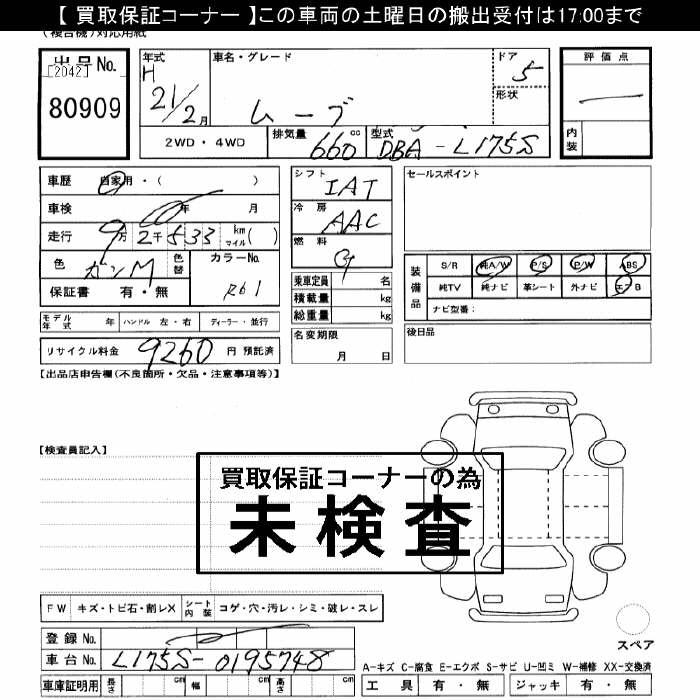 【 買取保証コーナー 】この車両の土曜日の搬出受付は17:00まで
(複合機)対応用紙
出品No.
[2042]
80909
年式 車名・グレード ドア
H 21/2月 ムーブ 5
形状
評価点
内装
2WD・4WD 排気量 660 cc 型式 DBA-L175S
車歴 自家用・( )
車検 年 月
走行 9万 2千 5 33 km マイル( )
色 ガンM 色替 カラーNo. R61
保証書 有・無
シフト IAT
冷房 AAC
燃料 G
乗車定員 名
積載量 kg
総重量 kg
セールスポイント
装備品
S/R 純A/W P/S P/W ABS
純TV 純ナビ 革シート 外ナビ エアB
ナビ型番:
モデル年式 年 ハンドル 左・右 ディーラー・並行
リサイクル料金 9260 円 預託済
名変期限
月 日
後日品
【出品店申告欄(不良箇所・欠品・注意事項等)】
【検査員記入】
買取保証コーナーの為
未検査
FW キズ・トビ石・割レX シート内装 コゲ・穴・汚レ・シミ・破レ・スレ
登録No.
車台No. L175S-0195748
車庫証明用 長さ cm 幅 cm 高さ cm
スペア
A-キズ C-腐食 E-エクボ S-サビ U-凹ミ W-補修 XX-交換済
工具 有・無 ジャッキ 有・無